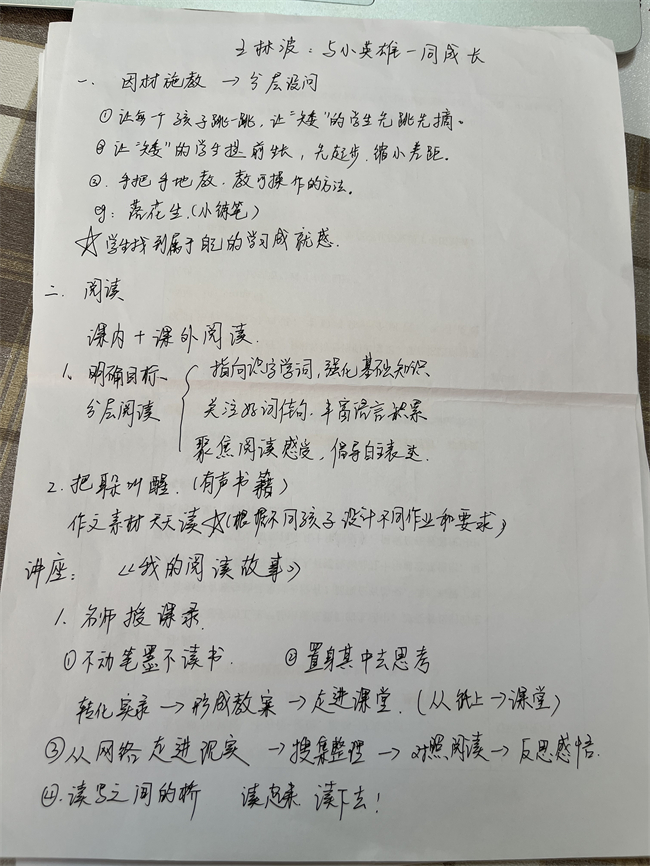 王林波：与小英雄一同成长
一、因材施教 → 分层设问
①让每个孩子跳一跳，让“矮”的学生先跳先摘。
②让“矮”的学生提前生长，先起步.缩小差距。
③.手把手地教.教可操作的方法。
eg：落花生.(小练笔)
☆学生找到属于自己的学习成就感.
二.阅读
课内+课外阅读.
1、明确目标、 指向识字学词，强化基础知识
分层阅读 关注好词佳句.丰富语言积累
聚焦阅读感受，倡导自主表达.
2.把耳朵叫醒.(有声书籍)
作文素材天天读☆(根据不同孩子设计不同作业和要求)
讲座：《我的阅读故事》
1.名师授课录.
①不动笔墨不读书. ②置身其中去思考
转化实录→形成教案→走进课堂.(从纸上→课堂)
③从网络走进现实→搜集整理→对照阅读→反思感悟.
④.读写之间的桥 读起来.读下去！